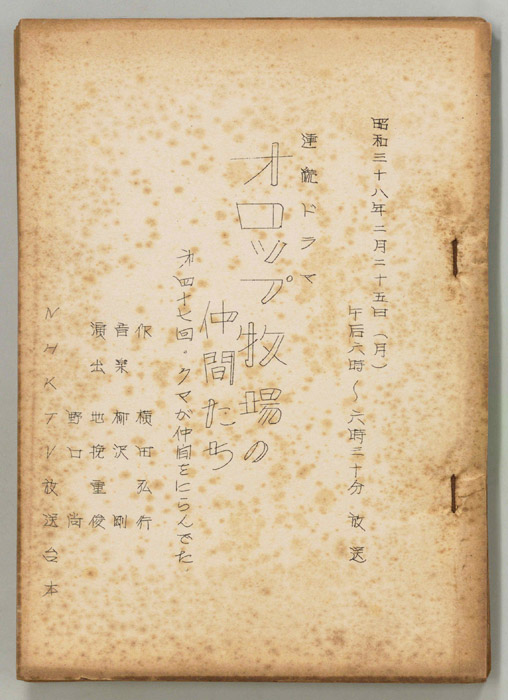 昭和三十八年二月二十五日（月）
午后六時〜六時三十分 放送
連続ドラマ
オロップ牧場の
仲間たち
才四十七回・クマが仲自をにらんでた
作 横田弘行
音楽 柳沢剛
演出 地挽重俊
野口尚
NHKTV放送台本